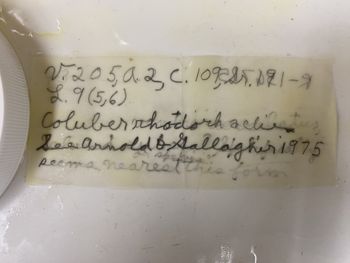 V. 205, A. 2, C. 109
L. 9 (5,6)
Coluber rhodorhachis
See Arnold & Gallagher 1975
seems nearest this form